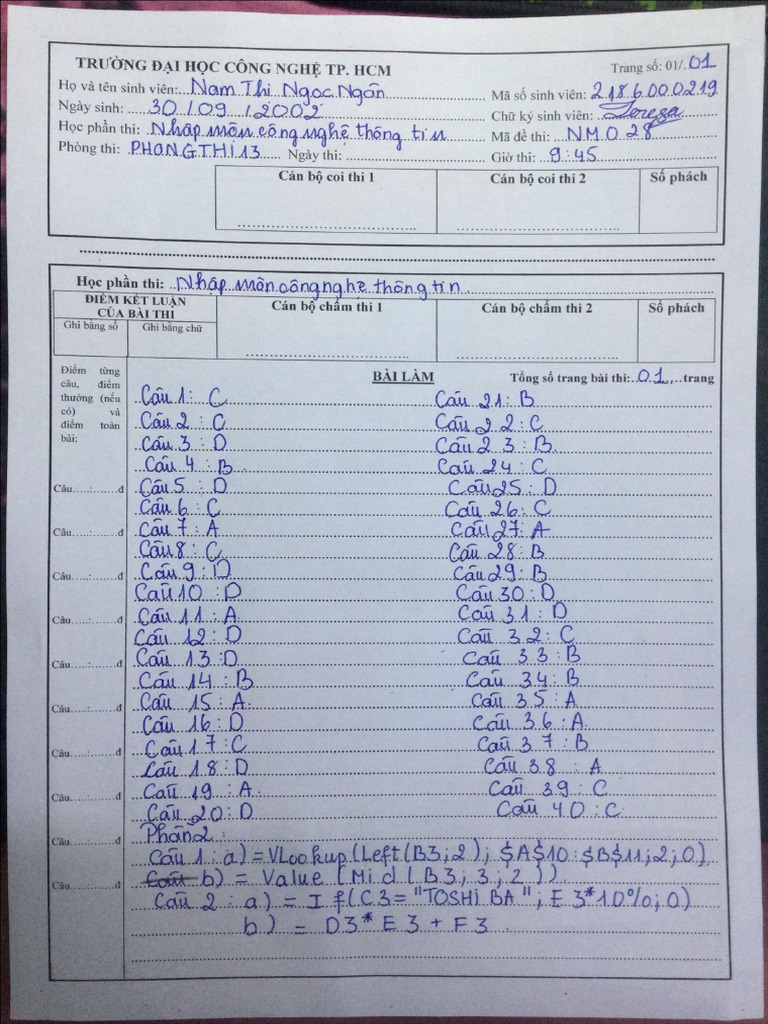 TRƯỜNG ĐẠI HỌC CÔNG NGHỆ TP. HCM
Trang số: 01/.01
Họ và tên sinh viên: Nam Thi Ngọc Ngân
Mã số sinh viên: 2186000219
Ngày sinh: 30/09/2002
Chữ ký sinh viên: Teresa
Học phần thi: Nhập môn công nghệ thông tin
Mã đề thi: NM028
Phòng thi: PHONGTHI13 Ngày thi:
Giờ thi: 9:45
Cán bộ coi thi 1 Cán bộ coi thi 2 Số phách
Học phần thi: Nhập môn công nghệ thông tin
ĐIỂM KẾT LUẬN
CỦA BÀI THI
Ghi bằng số Ghi bằng chữ
Cán bộ chấm thi 1 Cán bộ chấm thi 2 Số phách
Điểm từng
câu, điểm
thưởng (nếu
có) và
điểm toàn
bài:
BÀI LÀM Tổng số trang bài thi: 01 trang
Câu 1: C Câu 21: B
Câu 2: C Câu 22: C
Câu 3: D Câu 23: B
Câu 4: B Câu 24: C
Câu.....:.......đ Câu 5: D Câu 25: D
Câu 6: C Câu 26: C
Câu.....:.......đ Câu 7: A Câu 27: A
Câu 8: C Câu 28: B
Câu.....:.......đ Câu 9: D Câu 29: B
Câu 10: D Câu 30: D
Câu.....:.......đ Câu 11: A Câu 31: D
Câu 12: D Câu 32: C
Câu.....:.......đ Câu 13: D Câu 33: B
Câu 14: B Câu 34: B
Câu.....:.......đ Câu 15: A Câu 35: A
Câu 16: D Câu 36: A
Câu.....:.......đ Câu 17: C Câu 37: B
Câu 18: D Câu 38: A
Câu.....:.......đ Câu 19: A Câu 39: C
Câu 20: D Câu 40: C
Câu.....:.......đ Phần 2:
Câu 1: a) = VLookup(Left(B3;2);$A$10:$B$11;2;0)
Câu.....:.......đ Câu b) = Value (Mid(B3;3;2))
Câu 2: a) = If(C3="TOSHiBA"; E3*10%;0)
b) = D3*E3+F3